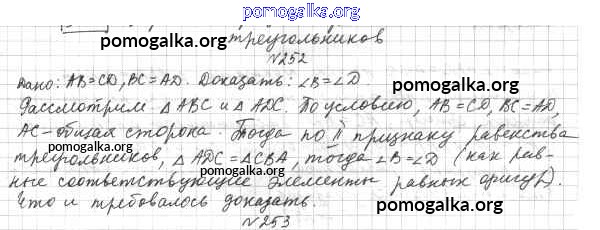 pomogalka.org
pomogalka.org треугольников
№252
Дано: AB=CD, BC=AD. Доказать: ∠B=∠D
Рассмотрим △ABC и △ADC. По условию, AB=CD, BC=AD,
AC-общая сторона. Тогда по II признаку равенства
pomogalka.org
треугольников, △ADC=△CBA, тогда ∠B=∠D (как рав-
ные соответствующие элементы равных фигур).
Что и требовалось доказать. pomogalka.org
№253